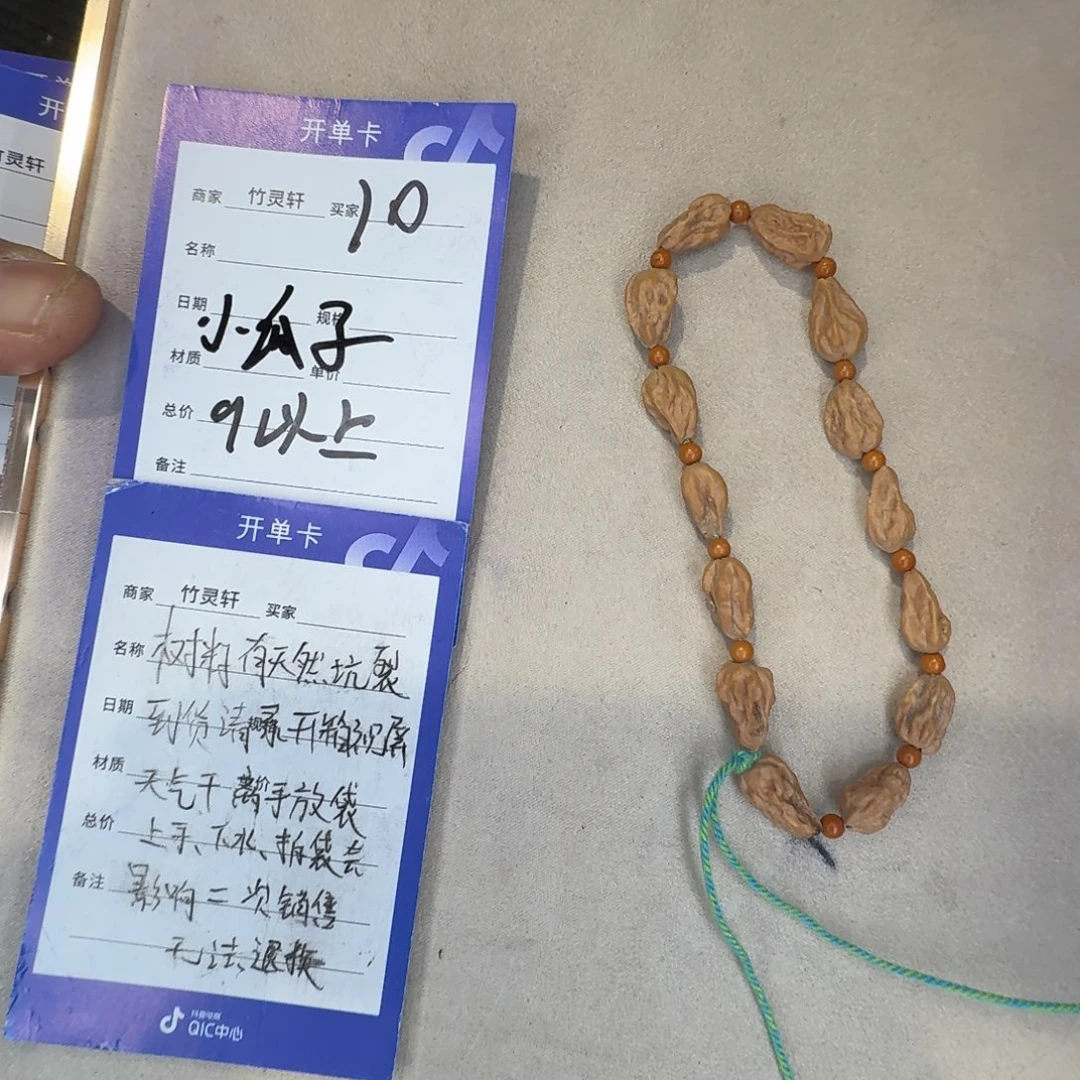 开
竹灵轩
开单卡
商家 竹灵轩 买家 10
名称
日期 小瓜子 规格
材质 单价
总价 9以上
备注
开单卡
商家 竹灵轩 买家
名称 材料有天然坑裂
日期 到货请录开箱视屏
材质 天气干离手放袋
总价 上手、下水、拆袋会
备注 影响二次销售
无法退换
抖音电商
QIC中心